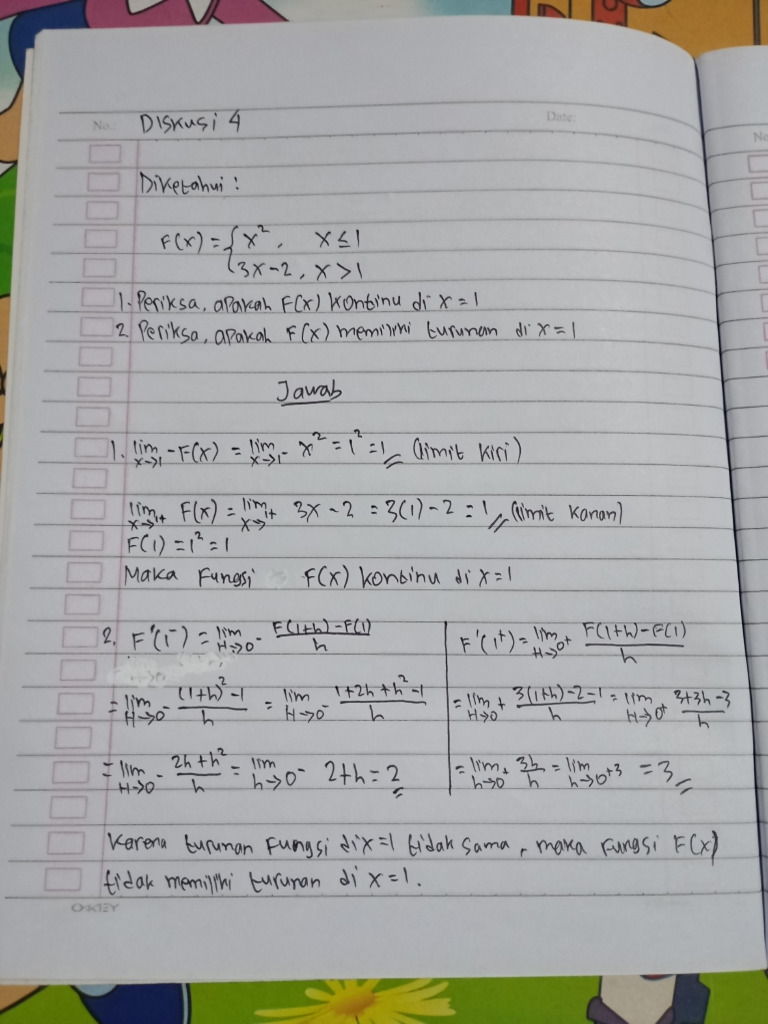 No.: Diskusi 4 Date:
No
Diketahui :
F(x) = { x², x ≤ 1
3x-2, x > 1
1. Periksa, apakah F(x) kontinu di x = 1
2 Periksa, apakah F(x) memiliki turunan di x = 1
Jawab
1. lim x→1 - F(x) = lim x→1⁻ x² = 1² = 1 (limit kiri)
lim x→1+ F(x) = lim x→+ 3x - 2 = 3(1) - 2 = 1 (limit kanan)
F(1) = 1² = 1
Maka Fungsi F(x) kontinu di x = 1
2. F'(1⁻) = lim H→0⁻ F(1+h) - F(1) / h
= lim H→0⁻ (1+h)² - 1 / h = lim H→0⁻ 1 + 2h + h² - 1 / h
= lim H→0⁻ 2h + h² / h = lim h→0⁻ 2 + h = 2
F'(1⁺) = lim H→0⁺ F(1+h) - F(1) / h
= lim H→0⁺ 3(1+h) - 2 - 1 / h = lim H→0⁺ 3 + 3h - 3 / h
= lim h→0⁺ 3h / h = lim h→0⁺ 3 = 3
Karena turunan Fungsi di x = 1 tidak sama, maka Fungsi F(x)
tidak memiliki turunan di x = 1.
OKEY